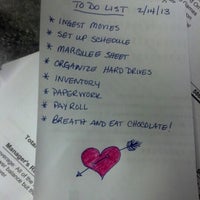 TO DO LIST 2/14/13
* INGEST MOVIES
* SET UP SCHEDULE
* MARQUEE SHEET
* ORGANIZE HARD DRIVES
* INVENTORY
* PAPERWORK
* PAYROLL
* BREATH AND EAT CHOCOLATE!
Manager's